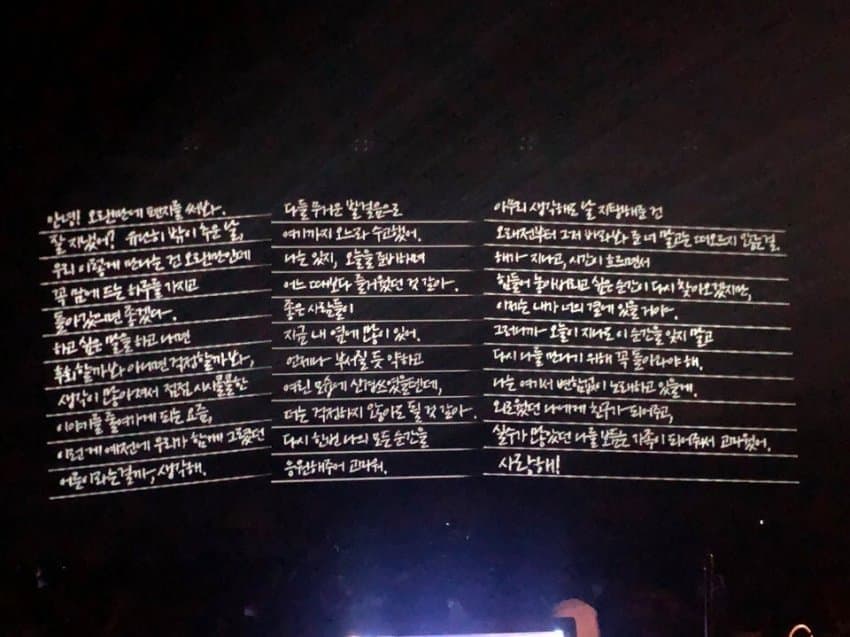 안녕! 오랜만에 편지를 써봐.
잘 지냈어? 유난히 밖이 추운 날,
우리 이렇게 만나는 건 오랜만인데
꼭 맘에 드는 하루를 가지고
돌아갔으면 좋겠다.
하고 싶은 말을 하고 나면
후회할까봐 아니면 걱정할까봐,
생각이 많아져서 점점 시시물물한
이야기를 줄여가게 되는 요즘,
이런 게 예전에 우리가 함께 그렸던
어른이라는걸까, 생각해.
다들 무거운 발걸음으로
여기까지 오느라 수고했어.
나는 있지, 오늘을 준비하며
어느 때보다 즐거웠던 것 같아.
좋은 사람들이
지금 내 옆에 많이 있어.
언제나 부서질 듯 약하고
여린 모습에 신경쓰였을텐데,
더는 걱정하지 않아도 될 것 같아.
다시 한번 나의 모든 순간을
응원해주어 고마워.
아무리 생각해도 날 지탱해준 건
오래전부터 그저 바라봐 준 너 말고는 떠오르지 않는걸.
해가 지나고, 시간이 흐르면서
힘들어 놓아버리고 싶은 순간이 다시 찾아오겠지만,
이제는 내가 너의 곁에 있을거야.
그러니까 오늘이 지나도 이 순간을 잊지 말고
다시 나를 만나기 위해 꼭 돌아와야 해.
나는 여기서 변함없이 노래하고 있을게.
외로웠던 나에게 친구가 되어주고,
실수가 많았던 나를 보듬는 가족이 되어줘서 고마웠어.
사랑해!